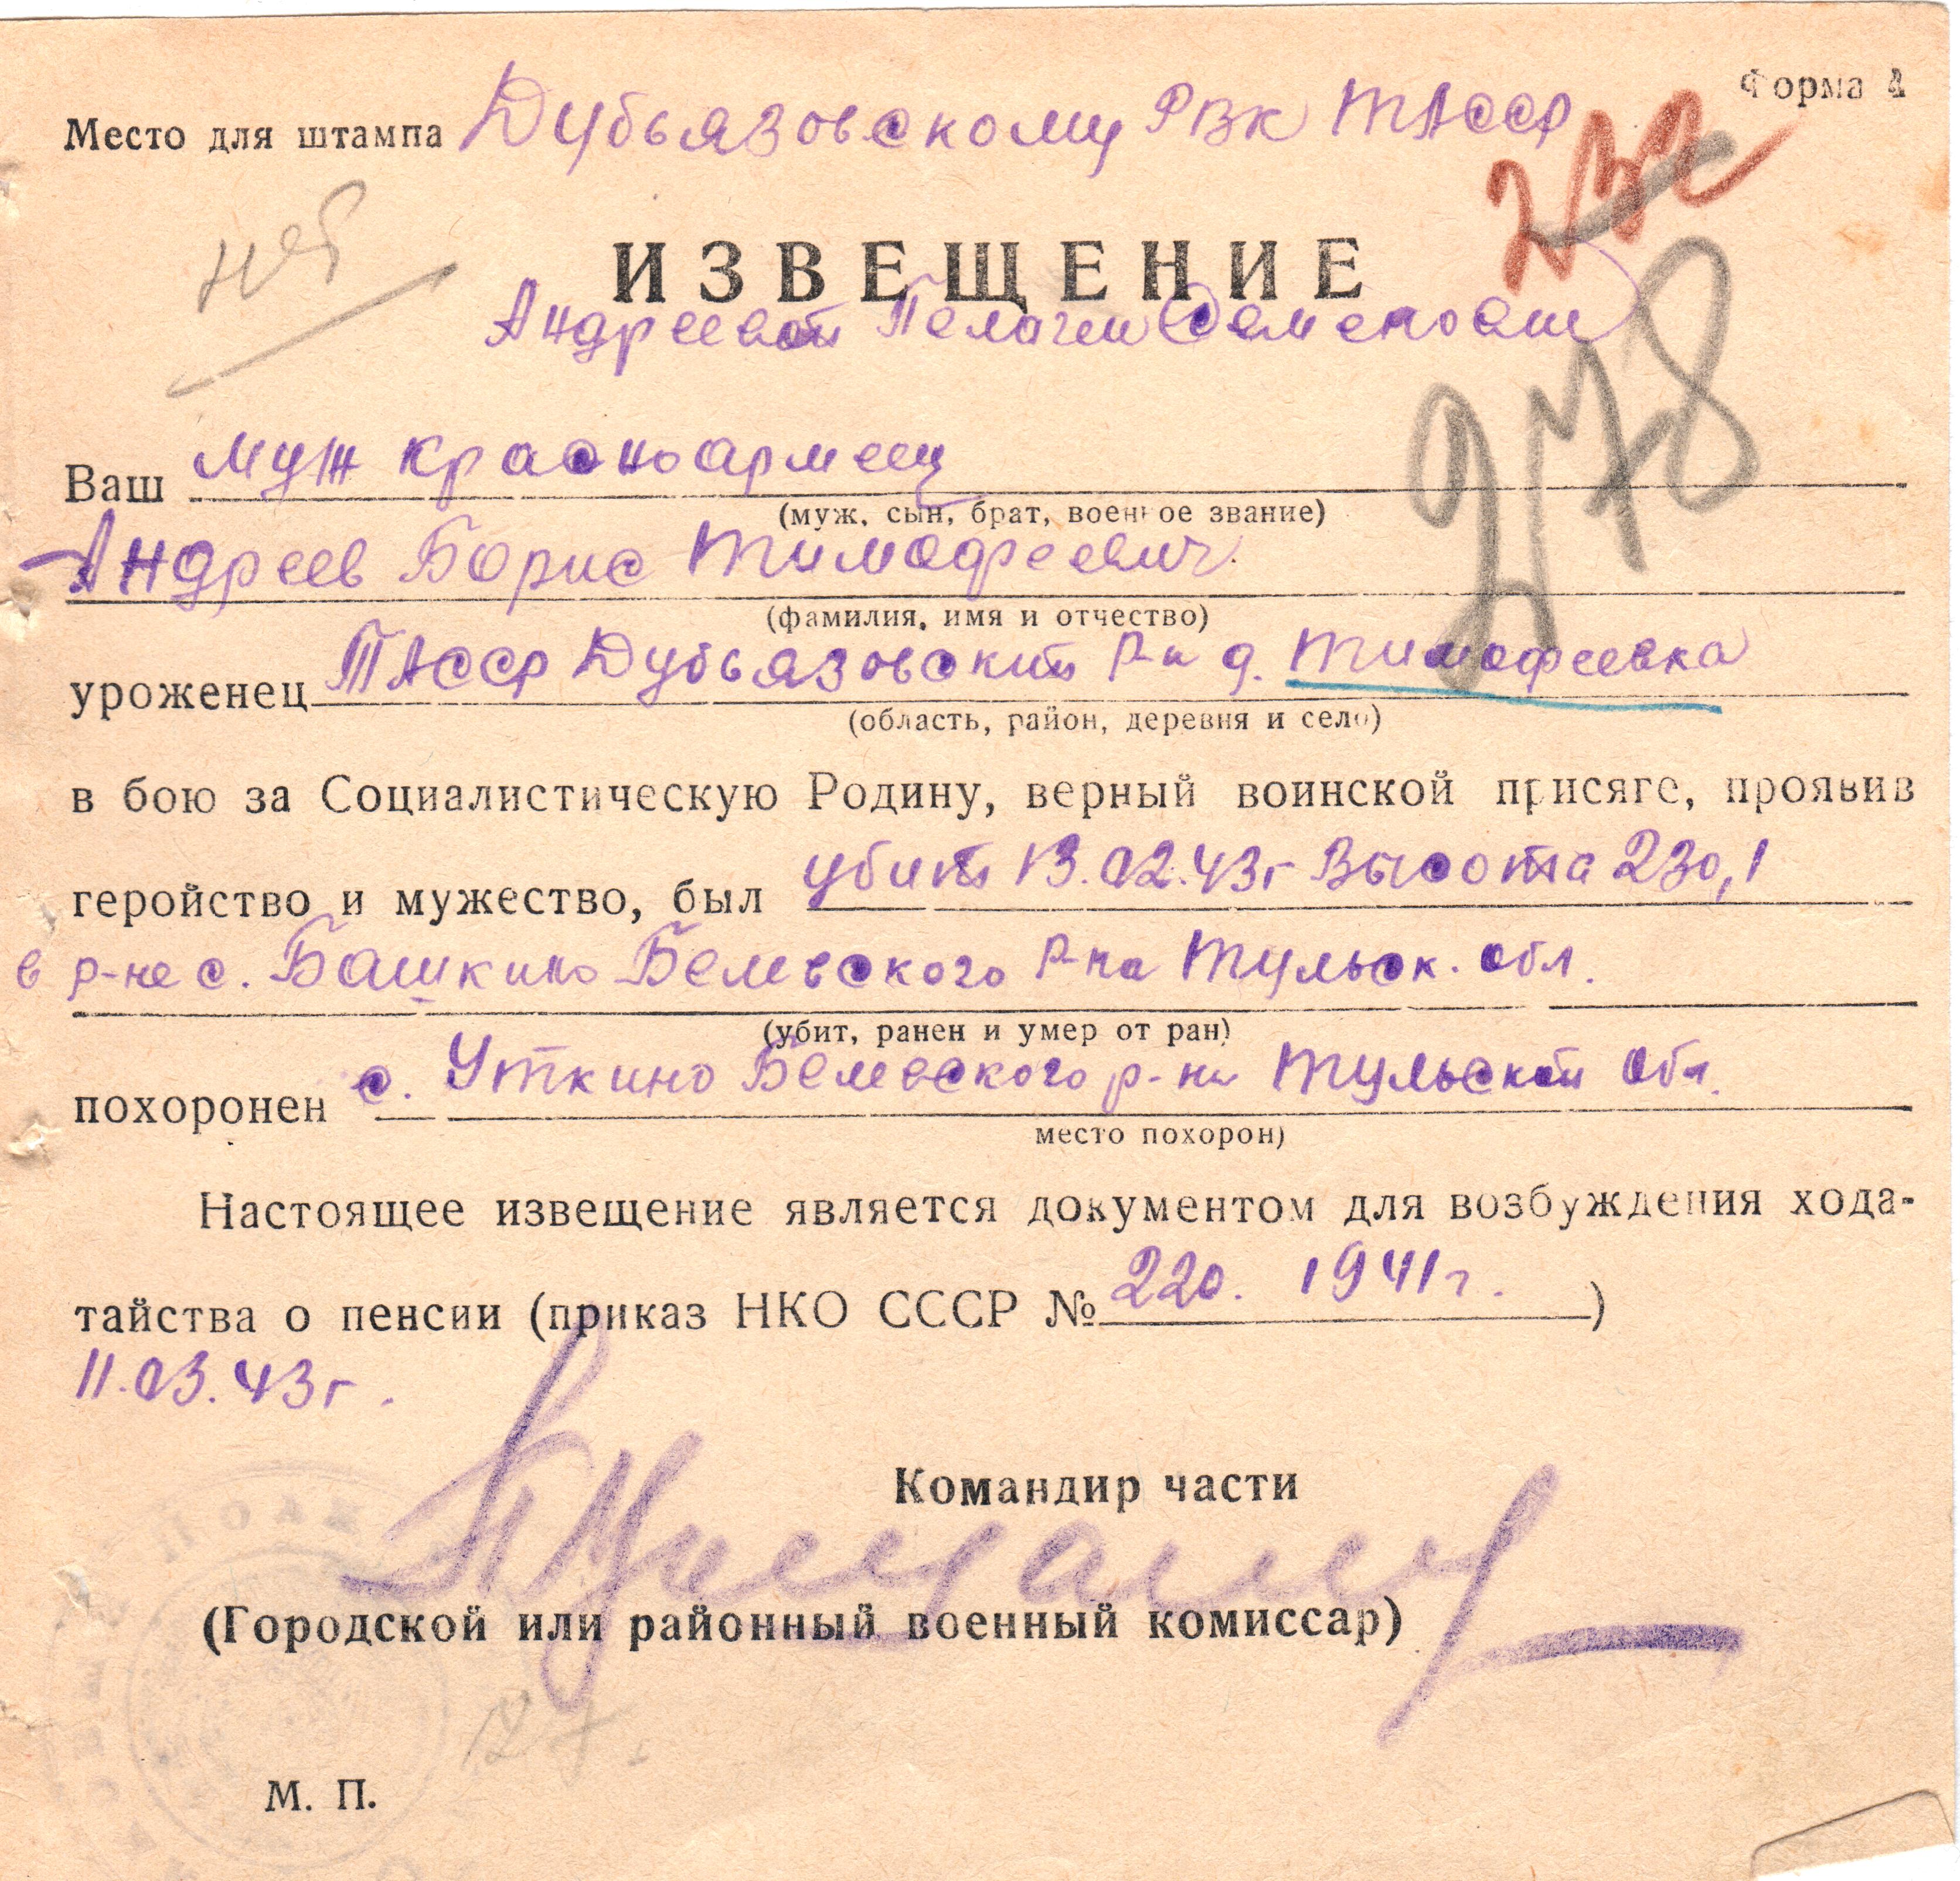 Форма 4
Место для штампа Дубьязовскому РВК ТАССР
нет
ИЗВЕЩЕНИЕ
Андреевой Пелагеи Семеновне
278
Ваш муж красноармеец
(муж, сын, брат, военное звание)
Андреев Борис Тимофеевич
(фамилия, имя и отчество)
уроженец ТАССР Дубьязовский р-н д. Тимофеевка
(область, район, деревня и село)
в бою за Социалистическую Родину, верный воинской присяге, проявив
геройство и мужество, был убит 13.02.43г Высота 230,1
в р-не с. Башкино Белевского р-на Тульск. обл.
(убит, ранен и умер от ран)
похоронен с. Уткино Белевского р-на Тульской обл.
место похорон)
Настоящее извещение является документом для возбуждения хода-
тайства о пенсии (приказ НКО СССР № 220. 1941г.)
11.03.43г.
Командир части
(Городской или районный военный комиссар)
127.
М. П.